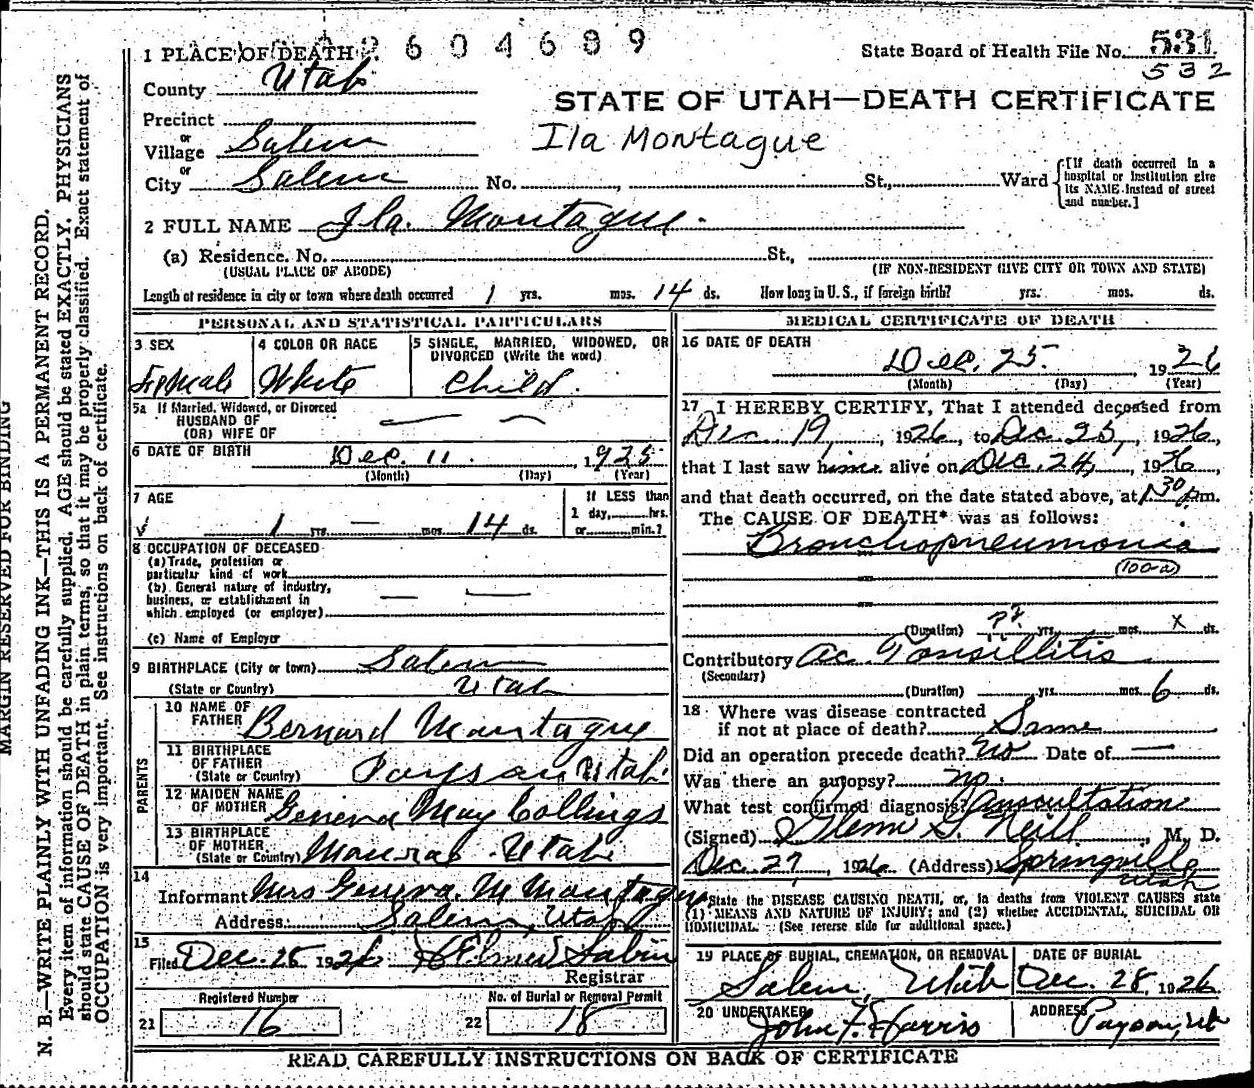 2604689
1 PLACE OF DEATH
State Board of Health File No. 531
532
County Utah
STATE OF UTAH—DEATH CERTIFICATE
Precinct
Ila Montague
or
Village Salem
or
City Salem No. , St., Ward
[If death occurred in a hospital or institution give its NAME instead of street and number.]
2 FULL NAME Ila. Montague.
(a) Residence. No. St.,
(USUAL PLACE OF ABODE) (IF NON-RESIDENT GIVE CITY OR TOWN AND STATE)
Length of residence in city or town where death occurred 1 yrs. mos. 14 ds. How long in U. S., if foreign birth? yrs. mos. ds.
PERSONAL AND STATISTICAL PARTICULARS
3 SEX
Female
4 COLOR OR RACE
White
5 SINGLE, MARRIED, WIDOWED, OR
DIVORCED (Write the word)
Child.
5a If Married, Widowed, or Divorced
HUSBAND OF
(OR) WIFE OF
6 DATE OF BIRTH Dec. 11. 1925
(Month) (Day) (Year)
7 AGE
1 yrs. — mos. 14 ds.
If LESS than
1 day, hrs.
or min.?
8 OCCUPATION OF DECEASED
(a) Trade, profession or
particular kind of work
(b) General nature of industry,
business, or establishment in
which employed (or employer)
(c) Name of Employer
9 BIRTHPLACE (City or town) Salem
(State or Country) Utah
PARENTS
10 NAME OF
FATHER Bernard Montague
11 BIRTHPLACE
OF FATHER
(State or Country) Payson Utah
12 MAIDEN NAME
OF MOTHER Geneva May Collings
13 BIRTHPLACE
OF MOTHER
(State or Country) Monroe Utah
14
Informant Mrs Geneva. M Montague
Address: Salem, Utah
15
Filed Dec. 28 1926 Sabin
Registrar
Registered Number
21 16
No. of Burial or Removal Permit
22 18
MEDICAL CERTIFICATE OF DEATH
16 DATE OF DEATH
Dec. 25. 1926
(Month) (Day) (Year)
17 I HEREBY CERTIFY, That I attended deceased from
Dec. 19, 1926, to Dec. 25, 1926,
that I last saw him alive on Dec. 24, 1926,
and that death occurred, on the date stated above, at 1 30 p.m.
The CAUSE OF DEATH* was as follows:
Bronchopneumonia
(100-a)
(Duration) yrs. mos. x ds.
Contributory Ac. Tonsillitis
(Secondary)
(Duration) yrs. mos. 6 ds.
18 Where was disease contracted
if not at place of death? Same
Did an operation precede death? no Date of —
Was there an autopsy? no.
What test confirmed diagnosis? Auscultation
(Signed) Glenn S. Neill, M. D.
Dec. 27, 1926 (Address) Springville
Utah
*State the DISEASE CAUSING DEATH, or, in deaths from VIOLENT CAUSES state
(1) MEANS AND NATURE OF INJURY; and (2) whether ACCIDENTAL, SUICIDAL OR
HOMICIDAL. (See reverse side for additional space.)
19 PLACE OF BURIAL, CREMATION, OR REMOVAL
Salem, Utah
DATE OF BURIAL
Dec. 28, 1926
20 UNDERTAKER
John F. Harris
ADDRESS
Payson, Ut
READ CAREFULLY INSTRUCTIONS ON BACK OF CERTIFICATE
MARGIN RESERVED FOR BINDING
N. B.—WRITE PLAINLY WITH UNFADING INK—THIS IS A PERMANENT RECORD.
Every item of information should be carefully supplied. AGE should be stated EXACTLY. PHYSICIANS
should state CAUSE OF DEATH in plain terms, so that it may be properly classified. Exact statement of
OCCUPATION is very important. See instructions on back of certificate.